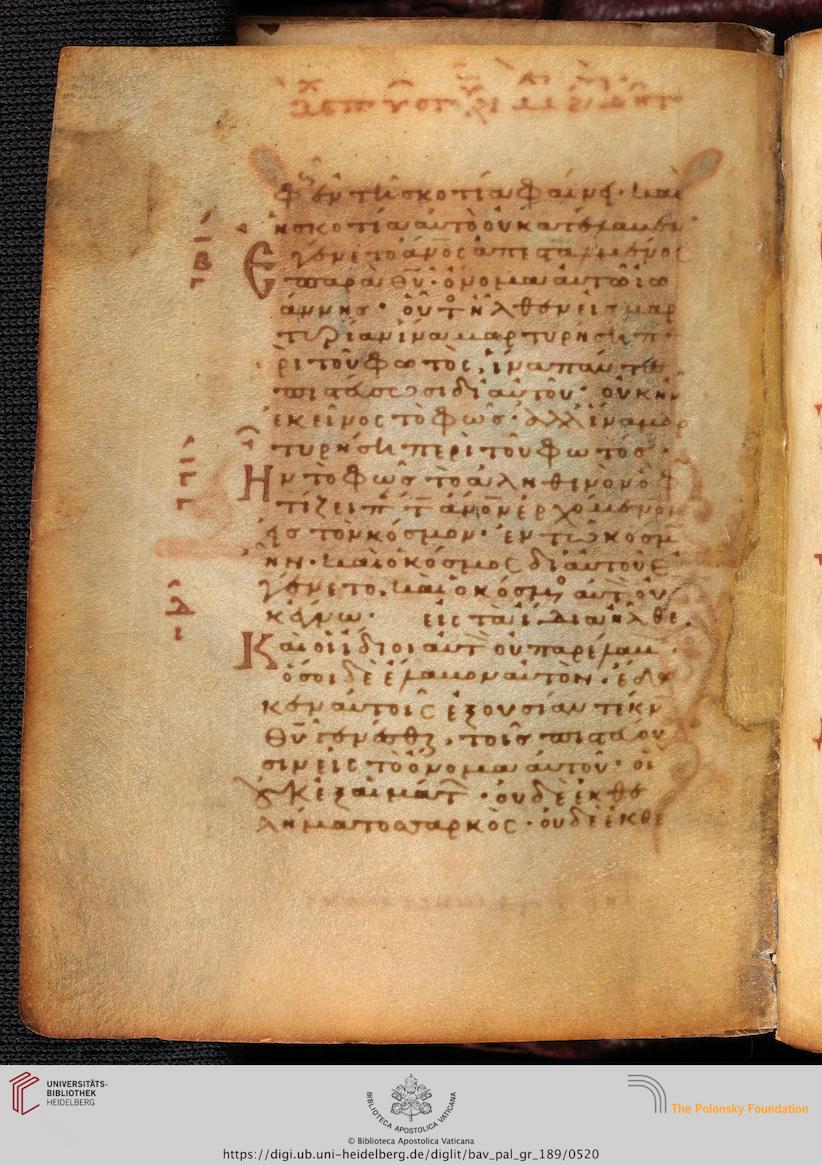 φ ἐν τῆ σκοτία φαίνει· και
ἡ σκοτία αὐτὸ οὐ κατέλαβεν
Ἐγένετο ἀνος ἀπεσταλμένος
παρὰ θῦ· ὄνομα αὐτῶ ἰω
άννης· οὗτ ἦλθεν εἰς μαρ
τυρίαν ἵνα μαρτυρήση π
ρι τοῦ φωτός, ἵνα πάντε
πιστεύσωσι δι αὐτοῦ· οὐκ ἦν
ἐκεῖνος τὸ φῶς· ἀλλ ἵνα μαρ
τυρήση περὶ τοῦ φωτός·
Ἦν τὸ φῶς τὸ ἀληθινὸν ὁ φ
τίζει π τ ἀνον ἐρχόμενον
εἰς τὸν κόσμον· ἐν τῶ κόσμ
ἦν· καὶ ὁ κόσμος δι αὐτοῦ ἐ
γένετο, καὶ ὁ κόσμ αὐτ οὐ
κ ἔγνω· εἰς τὰ ἴδια ἦλθε.
Καὶ οἱ ἴδιοι αὐτ οὐ παρέλαβ·
ὅσοι δὲ ἔλαβον αὐτὸν· ἔδω
κεν αὐτοῖς ἐξουσίαν τέκν
θῦ γενέσθαι, τοῖς πιστεύου
σιν εἰς τὸ ὄνομα αὐτοῦ· οἳ
οὐκ ἐξ αἱμάτ· οὐδὲ ἐκ θε
λήματος σαρκὸς· οὐδὲ ἐκ θε
UNIVERSITÄTS-
BIBLIOTHEK
HEIDELBERG
BIBLIOTECA APOSTOLICA VATICANA
© Biblioteca Apostolica Vaticana
The Polonsky Foundation
https://digi.ub.uni-heidelberg.de/diglit/bav_pal_gr_189/0520